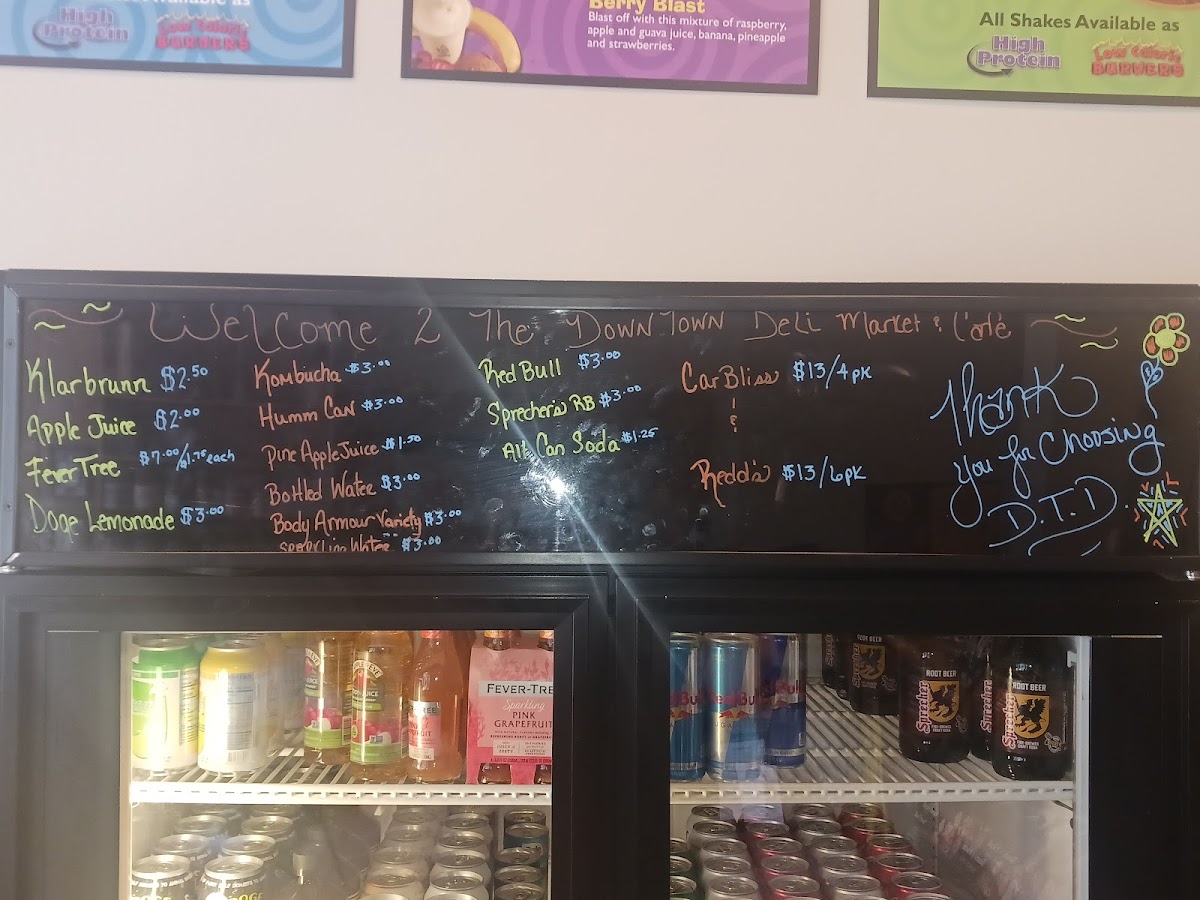 High Protein
Low Calorie BURNERS
Berry Blast
Blast off with this mixture of raspberry,
apple and guava juice, banana, pineapple
and strawberries.
All Shakes Available as
High Protein
Low Calorie BURNERS
Welcome 2 The DownTown Deli Market & Cafe
Klarbrunn $2.50
Apple Juice $2.00
Fever Tree $7.00/$1.75 each
Doge Lemonade $3.00
Kombucha $3.00
Humm Can $3.00
Pine Apple Juice $1.50
Bottled Water $3.00
Body Armour Variety $3.00
Sparkling Water $3.00
Red Bull $3.00
Sprecher's RB $3.00
All Can Soda $1.25
CarBliss $13/4pk
&
Redd's $13/6pk
Thank
you for Choosing
D.T.D.
FEVER-TREE
Sparkling
PINK
GRAPEFRUIT
Red Bull
ROOT BEER
Sprecher
ROOT BEER
Sprecher